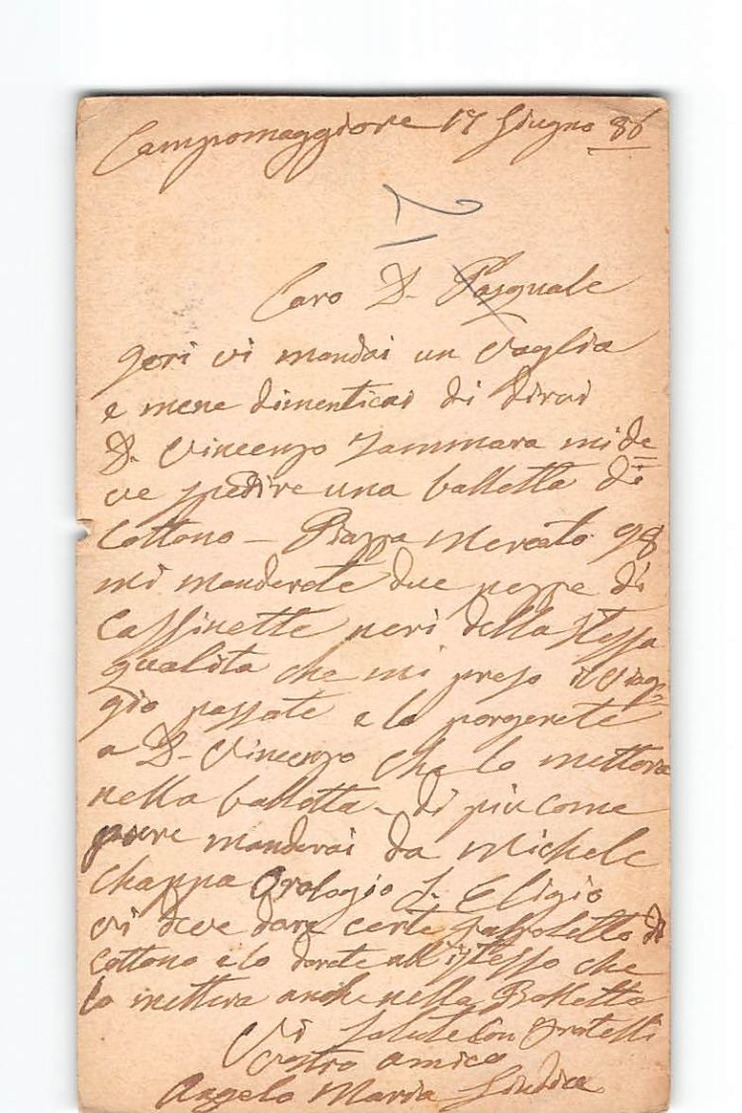 Campomaggiore 17 Giugno 86
Caro D. Pasquale
Jeri vi mandai un Vaglia
e mene dimenticai di dirvi
D. Vincenzo Zammara mi de=
ve spedire una balletta di
Cottono — Piazza Mercato 98
mi manderete due pezze di
Cassinette neri della stessa
qualita che mi preso il viag=
gio passato e lo porgerete
a D. Vincenzo che lo mettera
nella balletta — di piu come
pure manderai da Michele
Chappa Orologio S. Eligio
vi deve dare certe di
Cottono e lo darete all'istesso che
lo mettera anche nella Balletta
Vi saluto con Fratelli
Vostro amico
Angelo Maria